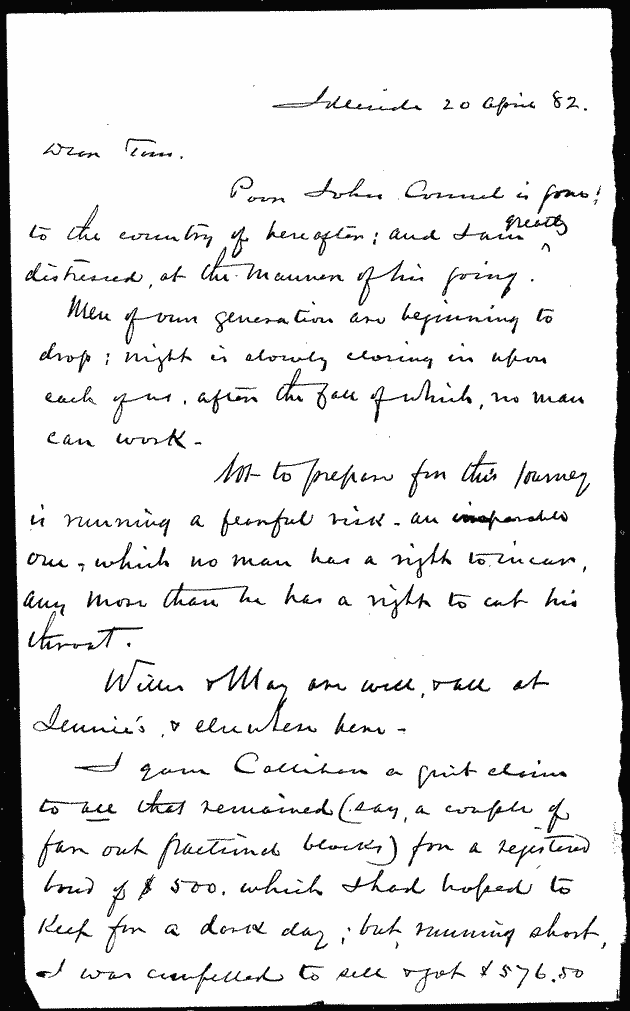 20 April 82.
Dear Tom.
Poor John Connel is gone!
to the country of hereafter; and I am greatly
distressed, at the manner of his going.
Men of our generation are beginning to
drop; night is slowly closing in upon
each of us, after the fall of which, no man
can work -
Not to prepare for this journey
is running a fearful risk - an
one, which no man has a right to incur,
any more than he has a right to cut his
throat.
Willis & May are well, & all at
Jennie's, & elsewhere here -
I gave Callihan a quit claim
to all that remained (say, a couple of
far out fractional blocks) for a registered
bond of $500. which I had hoped to
keep for a dark day; but, running short,
I was compelled to sell & got $576.50